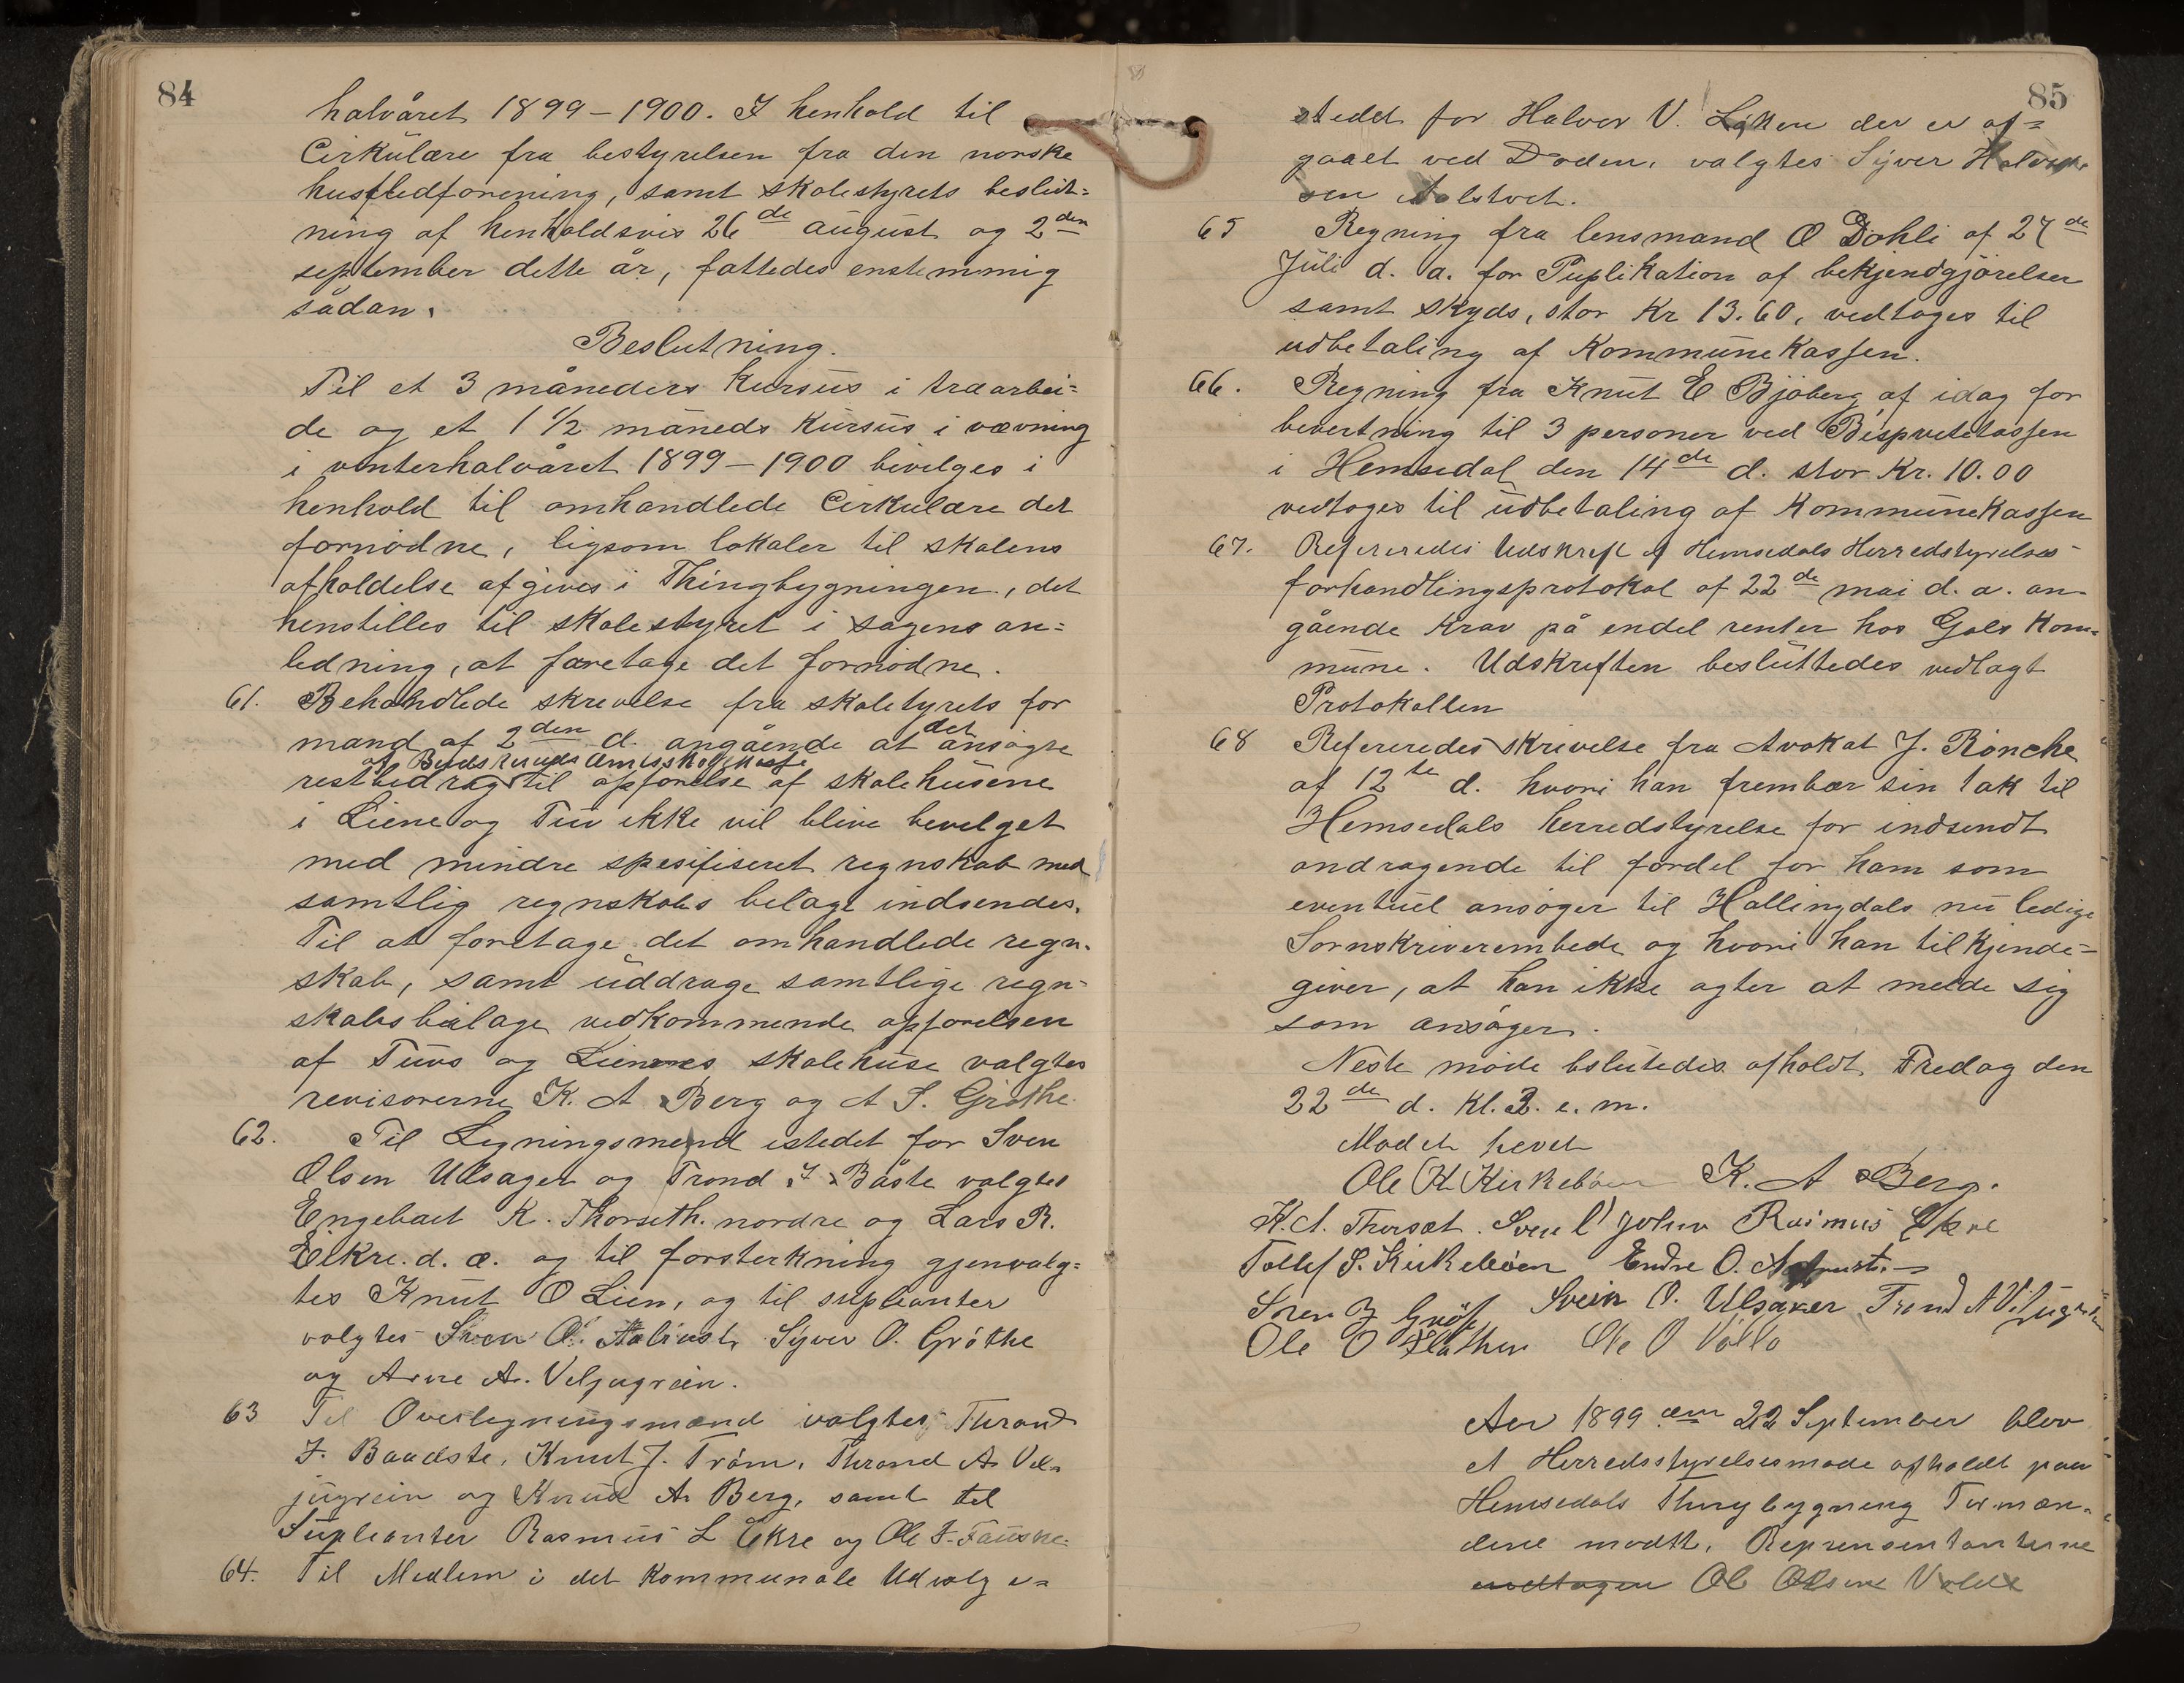 84
halvåret 1899-1900. I henhold til
Cirkulære fra bestyrelsen fra den norske
husflidforening, samt skolestyrets beslut=
ning af henholdsvis 26de august og 2den
september dette år, fattedes enstemmig
sådan.
Beslutning.
Til et 3 måneders kursus i træarbei=
de og et 1 1/2 måneds kursus i vævning
i vinterhalvåret 1899-1900 bevilges i
henhold til omhandlede Cirkulære det
fornødne, ligsom lokaler til skolens
afholdelse afgives i Thingbygningen, det
henstilles til skolestyret i sagens an=
ledning, at foretage det fornødne.
61. Behandlede skrivelse fra skoletyrets for
mand af 2den d. angående at det ansøgte
af Buskeruds Amtsskolekasse
restbidrag til opførelse af skolehusene
i Liene og Tuv ikke vil blive bevelget
med mindre spesifiseret regnskab med
samtlig regnskabs belage indsendes.
Til at foretage det omhandlede regn-
skab, samt uddrage samtlige regn-
skabsbilage vedkommende opførelsen
af Tuvs og Lienes skolehuse valgtes
revisorerne K. A Berg og A S. Grøthe
62. Til Legningsmend istedet for Sven
Olsen Ulsager og Trond I. Båste valgtes
Engebret K. Thorseth. nordre og Lars R.
Eikre. d. æ. og til forsterkning gjenvalg=
tes Knut O Lien, og til suplianter
valgtes Sven O. Sÿver O. Grøthe
og Arne A. Veljugrein.
63 Til Overlegningsmænd valgtes, Thrond
I. Baadste, Knut J. Trøm, Thrond A Vel-
jugrein og Knud A. Berg, samt til
Supleanter Rasmus L Ekre og Ole F. Fauske.
64. Til Medlem i det kommunale Udvalg i=
85
stedet for Halvor V. Løken der er af=
gaaet ved Døden, valgtes Syver
sen
65 Regning fra lensmand O Dokli af 27de
Juli d. a. for Puplikation af bekjendgjørelser
samt skyds, stor Kr 13.60, vedtoges til
udbetaling af Kommunekassen.
66. Regning fra Knut E Bjøberg af idag for
bevertning til 3 personer ved Bispvisitassen
i Hemsedal den 14de d. stor Kr. 10.00
vedtoges til udbetaling af Kommunekassen
67. Refereredes Udskrift af Hemsedals Herredstyrelses
forhandlingsprotokol af 22de mai d. a. an-
gående krav på endel renter hos Gols Kom=
mune. Udskriften besluttedes vedlagt
Protokollen
68 Refereredes skrivelse fra Avokat J. Røneke
af 12te d. hvori han frembær sin tak til
Hemsedals herredstyrelse for indsendt
andragende til fordel for ham som
eventuel ansøger til Hallingdals nu ledige
Sornskriverembede og hvori han tilkjende=
giver, at han ikke agter at melde sig
som ansøger.
Neste møde bslutedes afholdt, Fredag den
22de d. kl. 3. e. m.
Mødet hevet
Ole K. Kirkebøen K. A Berg.
K. A. Thorset. Rasmus Ekre
Tollef S. Kirkebøen Endre O.
Svein O. Ulsaker Trond A
Ole O Flathen Ole O
Aar 1899 den 22 September blev
et Herredsstyrelsesmøde afholdt paa
Hemsedals Thingbygning Formæn-
dene mødte, Reprensentanterne
Ole Olsen